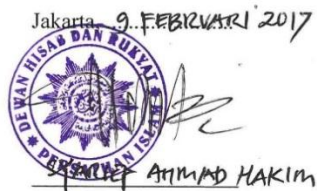 Jakarta, 9 FEBRUARI 2017
DEWAN HISAB DAN RUKYAT
PERSATUAN ISLAM
SYARIEF AHMAD HAKIM